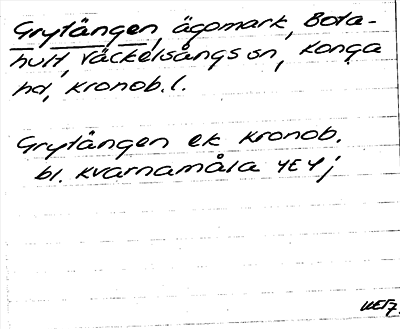 Grytängen, ägomark, Bota-
hult, Väckelsångs sn, Konga
hd, Kronob. l.
Grytängen ek Kronob.
bl. Kvarnamåla 4E4j